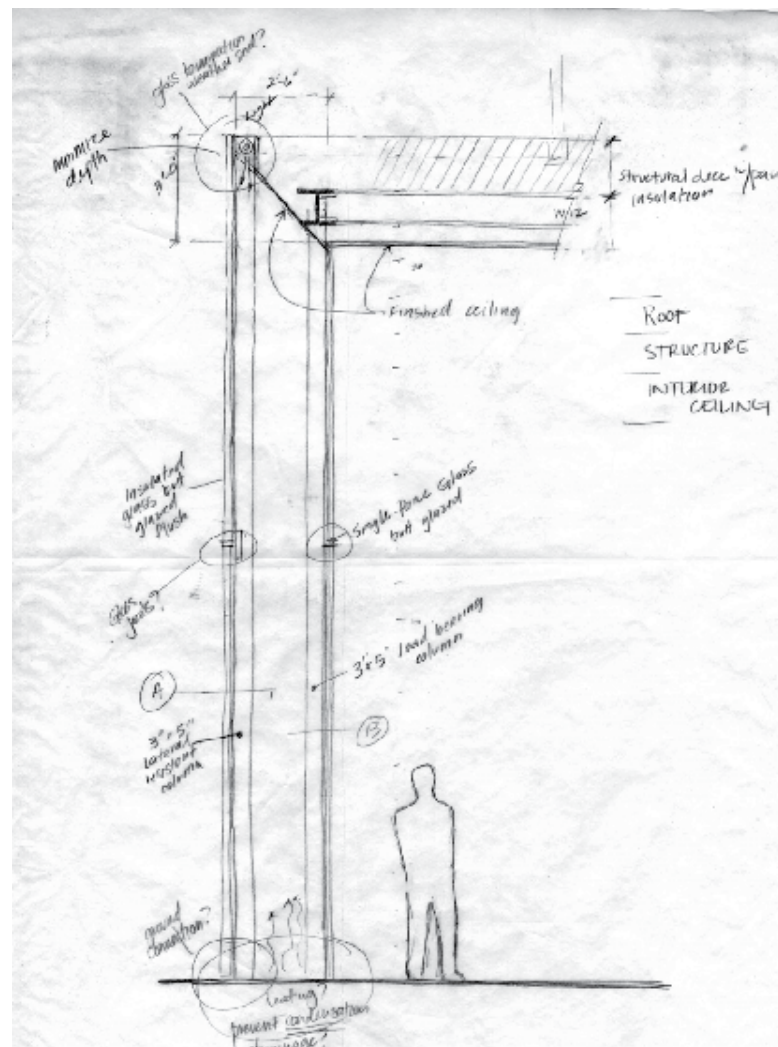 glass termination
weather seal?
2'-6"
light
minimize
depth
3'-0"
Structural deck w/
insulation
W12
Finished ceiling
ROOF
STRUCTURE
INTERIOR
CEILING
Insulated
glass butt
glazed
flush
Single-pane Glass
butt glazed
Glass
joints?
3"x5" Load bearing
column
A
B
3"x5"
Lateral
resistant
column
ground
connection?
heating?
prevent condensation